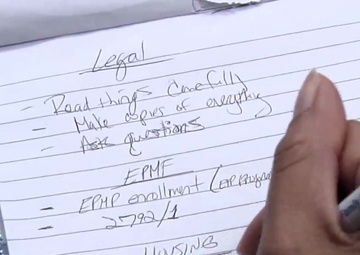 Legal
- Read things Carefully
- Make copies of everything
- Ask questions
EPMF
- EPMP enrollment (
- 2792/1
HOUSING